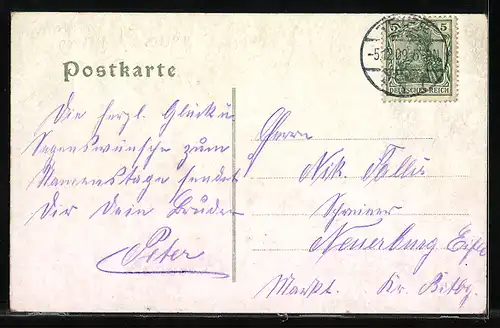 Postkarte
5 5
DEUTSCHES REICH
Die herzl. Glück u.
Segenswünsche zum
Namenstage sendet
Dir Dein Bruder
Peter
Herrn
Nik.
Schreiner
Neuerburg Eifel
Markt. Kr. Bitbg.